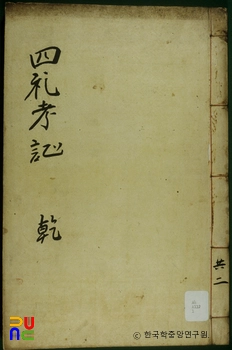 四礼考証 乾
共二
ⓒ 한국학중앙연구원